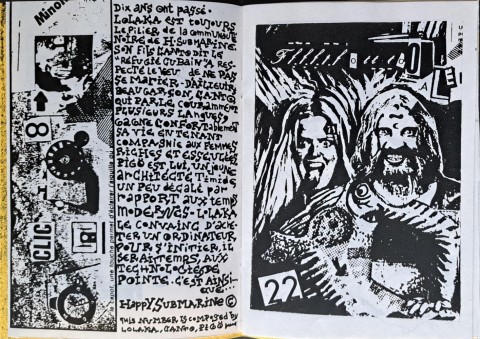 Minor
8
CLIC
DIX ANS ONT PASSÉ.
LOLAKA EST TOUJOURS
LE PILIER DE LA COMMUNAUTÉ
NOIRE DE H. SUBMARINE.
SON FILS KANTO DIT LE
"RÉFUGIÉ CUBAIN" A RES-
PECTÉ LE VOEU DE NE PAS
SE MARIER. D'AILLEURS,
BEAU GARÇON, CANTO
QUI PARLE COURAMMENT
PLUSIEURS LANGUES,
GAGNE CONFORTABLEMENT
SA VIE EN TENANT
COMPAGNIE AUX FEMMES
RICHES ET ESSEULÉES
EST LUI, UN JEUNE
ARCHITECTE TIMIDE
UN PEU DÉCALÉ PAR
RAPPORT AUX TEMPS
MODERNES. LOLAKA
LE CONVAINC D'ACHE-
TER UN ORDINATEUR
POUR S'INITIER, IL
SERAIT TEMPS, AUX
TECHNOLOGIES DE
POINTE. C'EST AINSI
QUE...
HAPPY SUBMARINE ©
THIS NUMBER IS COMPOSED BY
LOLAKA, CANTO,
22